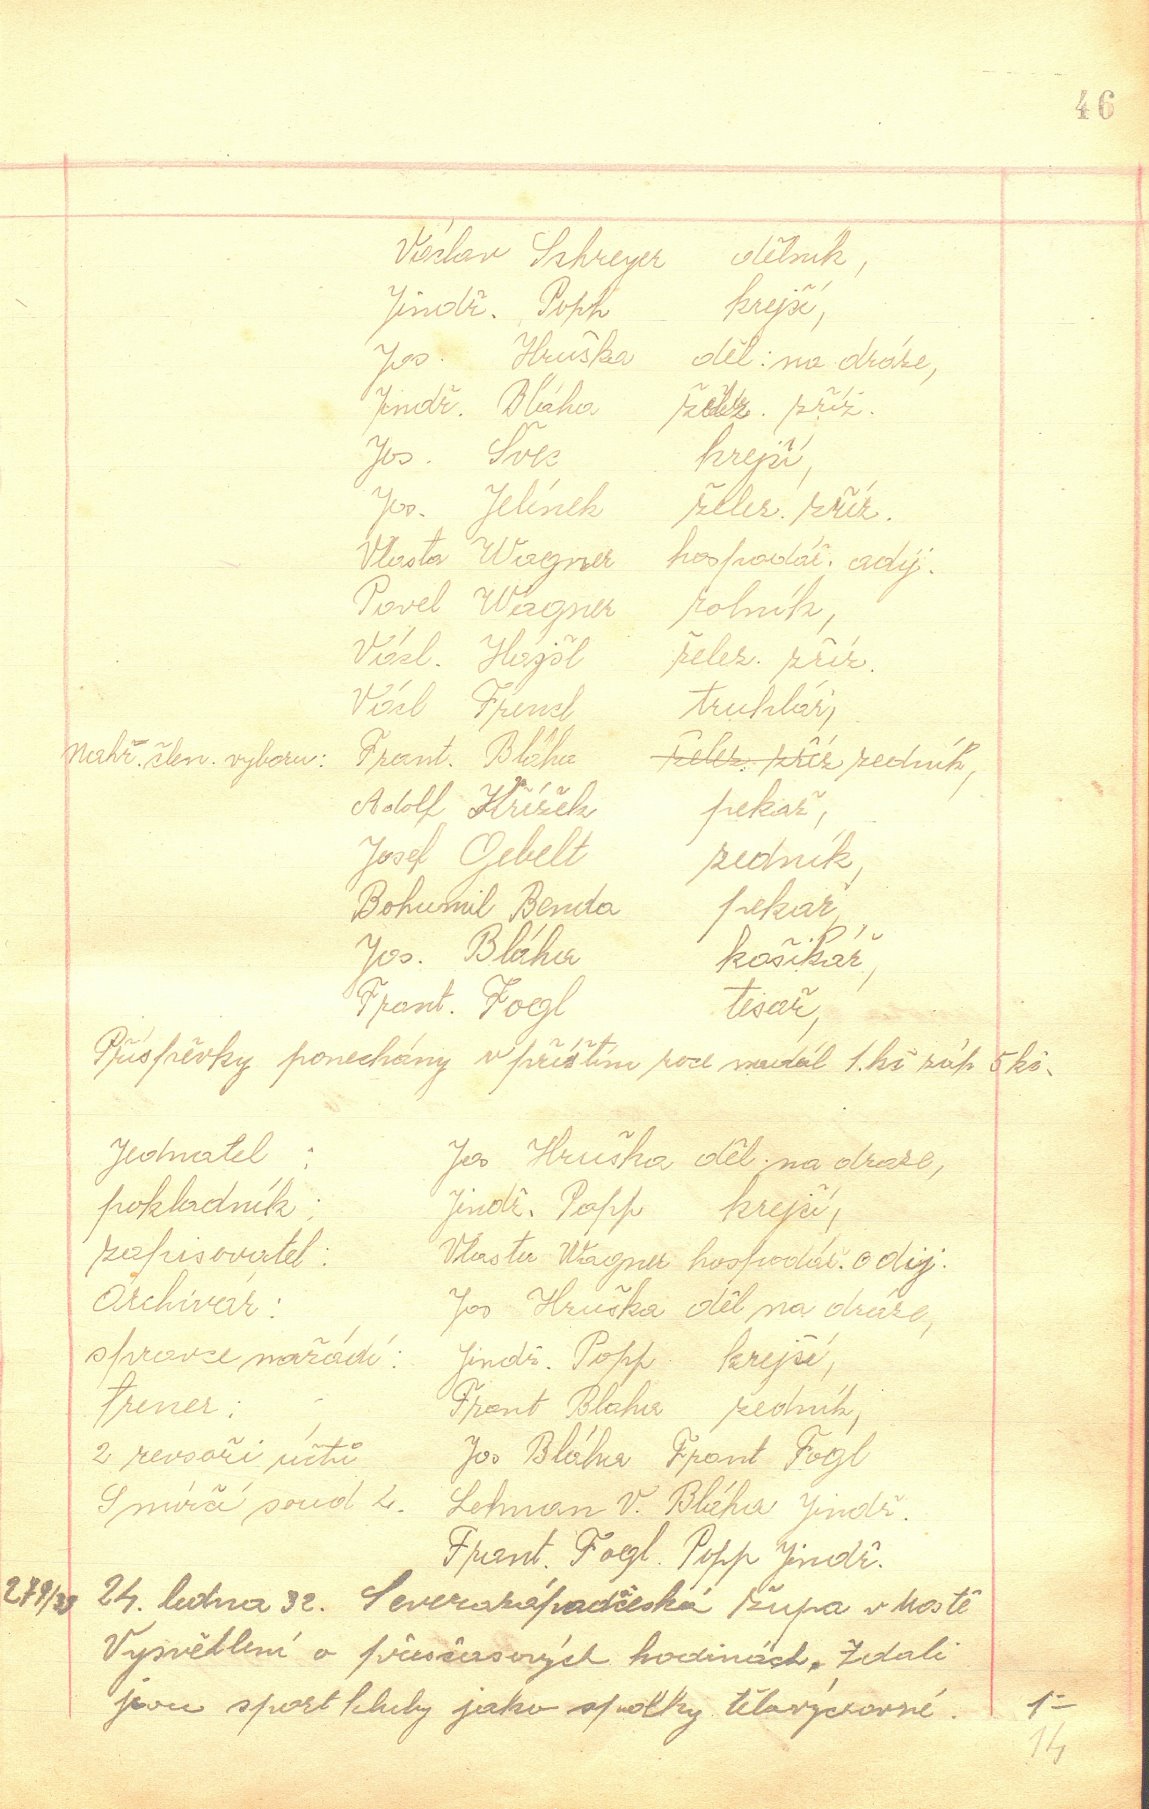 46
Václav Schreyer dělník,
Jindř. Popp krejčí,
Jos. Hruška děl: na dráze,
Jindř. Bláha želez. zříz.
Jos. Švec krejčí,
Jos. Jelínek želez. zříz.
Vlasta Wagner hospodář. adij.
Pavel Wagner rolník,
Václ. Hájšl želez. zříz.
Václ Frencl truhlář,
Nahř. člen. vyboru: Frant. Bláha želez. zříz zedník,
Adolf Křížek pekař,
Josef Gebelt zedník,
Bohumil Benda pekař,
Jos. Bláha košíkář,
Frant. Fogl tesař,
Příspěvky ponechány v příštím roce nadál 1.kč záp 5 kč.
Jednatel : Jos Hruška děl. na draze,
pokladník : Jindř. Popp krejčí,
zapisovatel : Vlasta Wagner hospodář. adij.
Archivář : Jos Hruška děl na dráze,
spravce nářádí : Jindř. Popp krejčí,
trener : Frant Blaha zedník,
2 revsoři účtů Jos Bláha Frant Fogl
Smírčí soud 4. Lehman V. Bláha Jindř.
Frant. Fogl. Popp Jindř.
24. ledna 32. Severozápadčeská župa v Mostě
Vysvětlení o přesčasových hodinách. Zdali
jsou sport kluby jako spolky tělovýchovné. 1-
14